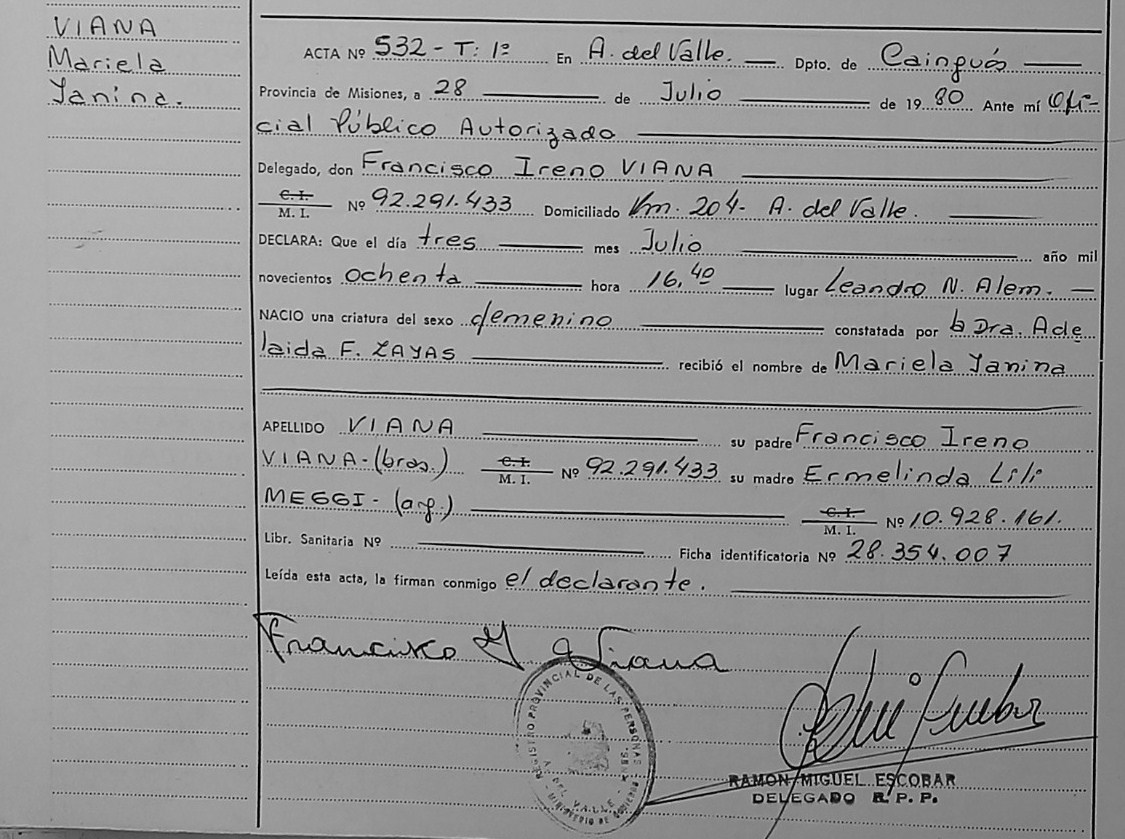 VIANA
Mariela
Yanina.
ACTA Nº 532 - T: 1º En A. del Valle. Dpto. de Cainguás
Provincia de Misiones, a 28 de Julio de 19 80 Ante mí Ofi-
cial Público Autorizado
Delegado, don Francisco Ireno VIANA
C. I. M. I. Nº 92.291.433 Domiciliado Km. 204- A. del Valle.
DECLARA: Que el día tres mes Julio año mil
novecientos ochenta hora 16,40 lugar Leandro N. Alem.
NACIO una criatura del sexo femenino constatada por la Dra. Ade
laida F. ZAYAS recibió el nombre de Mariela Yanina
APELLIDO VIANA su padre Francisco Ireno
VIANA-(bras.) C. I. M. I. Nº 92.291.433 su madre Ermelinda Lili
MEGGI- (arg.) C. I. M. I. Nº 10.928.161.
Libr. Sanitaria Nº Ficha identificatoria Nº 28.354.007
Leída esta acta, la firman conmigo el declarante.
Francisco Viana
REGISTRO PROVINCIAL DE LAS PERSONAS
MINISTERIO DE GOBIERNO
DEL VALLE
RAMON MIGUEL ESCOBAR
DELEGADO R. P. P.